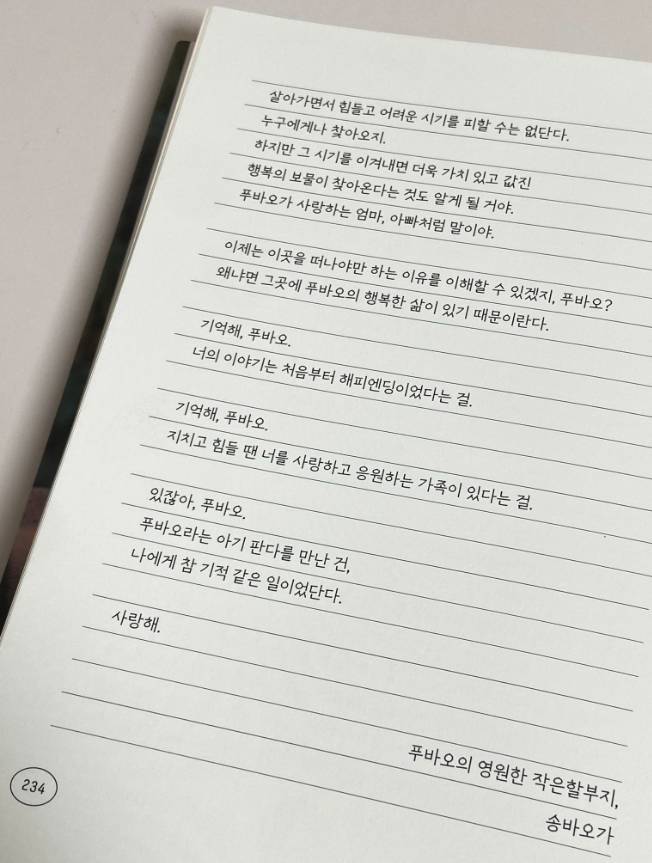 살아가면서 힘들고 어려운 시기를 피할 수는 없단다.
누구에게나 찾아오지.
하지만 그 시기를 이겨내면 더욱 가치 있고 값진
행복의 보물이 찾아온다는 것도 알게 될 거야.
푸바오가 사랑하는 엄마, 아빠처럼 말이야.
이제는 이곳을 떠나야만 하는 이유를 이해할 수 있겠지, 푸바오?
왜냐면 그곳에 푸바오의 행복한 삶이 있기 때문이란다.
기억해, 푸바오.
너의 이야기는 처음부터 해피엔딩이었다는 걸.
기억해, 푸바오.
지치고 힘들 땐 너를 사랑하고 응원하는 가족이 있다는 걸.
있잖아, 푸바오.
푸바오라는 아기 판다를 만난 건,
나에게 참 기적 같은 일이었단다.
사랑해.
푸바오의 영원한 작은할부지,
송바오가
234